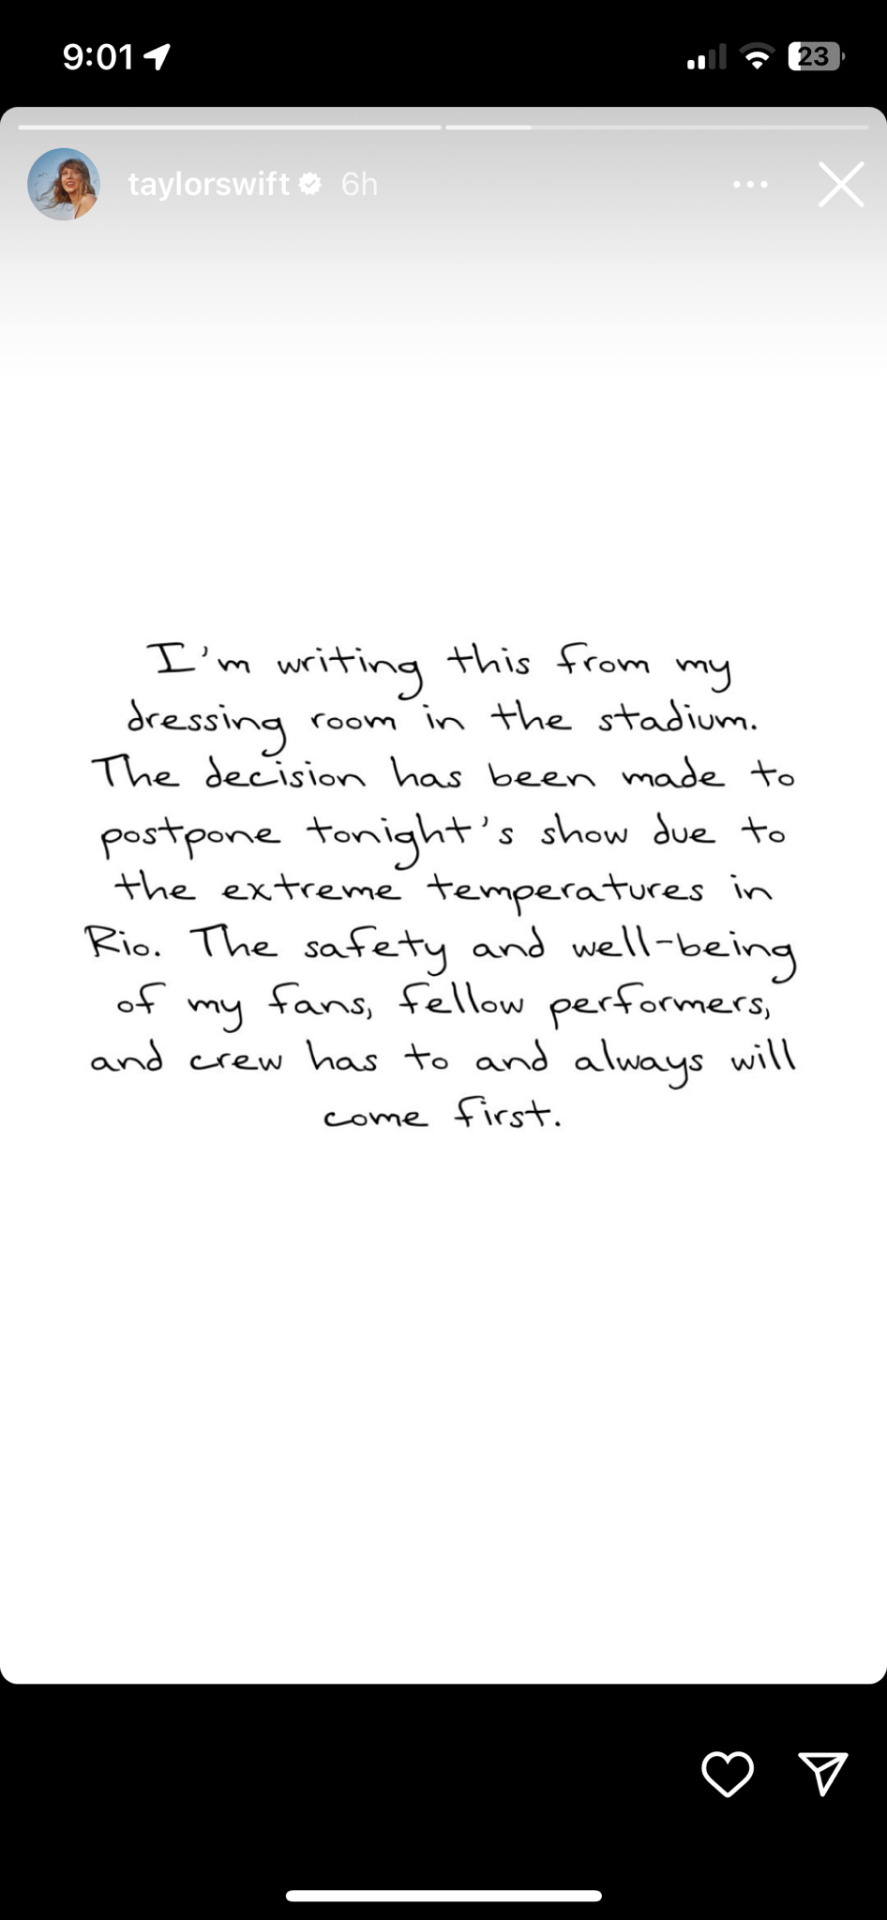 9:01
23
taylorswift 6h
I'm writing this from my
dressing room in the stadium.
The decision has been made to
postpone tonight's show due to
the extreme temperatures in
Rio. The safety and well-being
of my fans, fellow performers,
and crew has to and always will
come first.